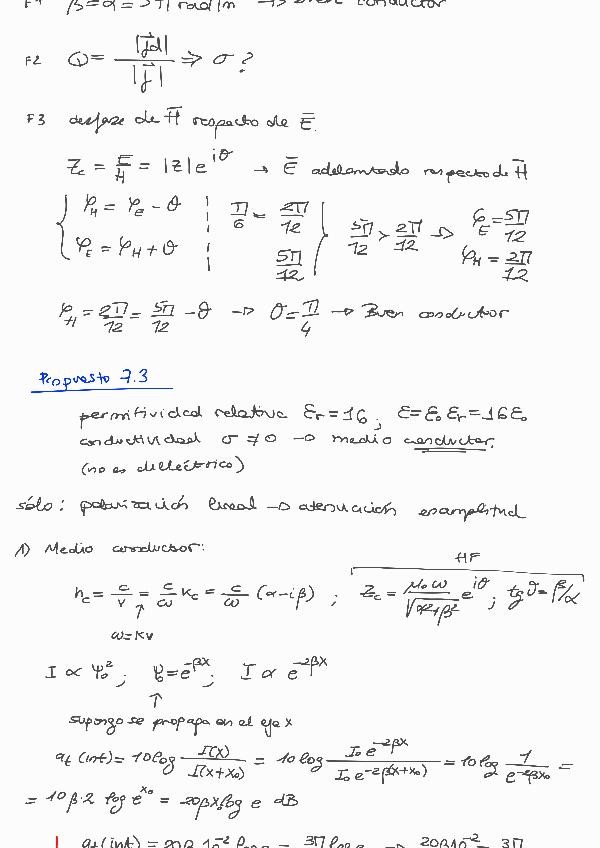 F1 β=α=5π rad/m → Buen conductor
F2 Q = |J⃗d| / |J⃗| ⇒ σ?
F3 desfase de H̅ respecto de E̅.
Zc = E/H = |Z|e^{iθ} → E̅ adelantado respecto de H̅
{ φ_H = φ_E - θ | π/6 = 2π/12 } 5π/12 > 2π/12 ⇒ φ_E = 5π/12
φ_E = φ_H + θ | 5π/12 φ_H = 2π/12
φ_H = 2π/12 = 5π/12 - θ → θ = π/4 → Buen conductor
Propuesto 7.3
permitividad relativa εr=16; ε=ε₀εr=16ε₀
conductividad σ≠0 → medio conductor.
(no es dieléctrico)
sólo: polarización lineal → atenuación en amplitud
1) Medio conductor:
HF
nc = c/v = c/ω Kc = c/ω (α-iβ) ; Zc = μ₀ω/√(α²+β²) e^{iθ}; tg θ = β/α
↑
ω=Kv
I ∝ ψ₀²; ψ₀=e^{-βx}; I ∝ e^{-2βx}
↑
supongo se propaga en el eje x
at (int) = 10 log I(x)/I(x+x₀) = 10 log I₀e^{-2βx}/I₀e^{-2β(x+x₀)} = 10 log 1/e^{-2βx₀} =
= 10β·2 log e^{x₀} = 20βx₀ log e dB
at (int) = 20β 10⁻² log e = 3π log e → 20β10⁻² = 3π